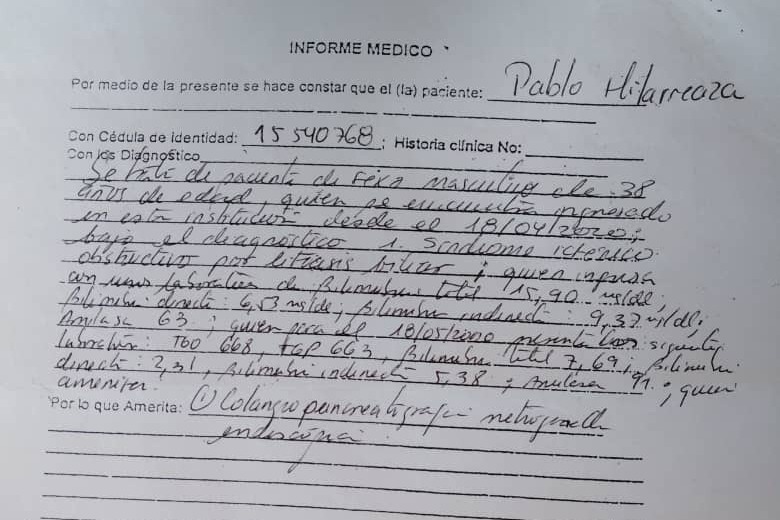 INFORME MEDICO
Por medio de la presente se hace constar que el (la) paciente: Pablo Hilarreaza
Con Cédula de Identidad: 15 540 768 ; Historia clínica No:
Con los Diagnóstico
Se trata de paciente de sexo masculino de 38
años de edad, quien se encuentra ingresado
en esta institución desde el 18/04/2020;
bajo el diagnostico 1. Sindrome icterico
obstructivo por litiasis biliar ; quien ingresa
con unos laboratorios de Bilirrubina total 15,90 mg/dl;
Bilirrubina directa: 6,53 mg/dl; Bilirrubina indirecta : 9,37 mg/dl;
Amilasa 63 ; quien para el 18/05/2020 presenta los siguientes
laboratorios: TGO 668, TGP 663, Bilirrubina total 7,69 ; Bilirrubina
directa: 2,31, Bilirrubina indirecta 5,38 ; Amilasa 91 ; quien
amerita.
Por lo que Amerita: ① Colangiopancreatografia retrograda
endoscópica